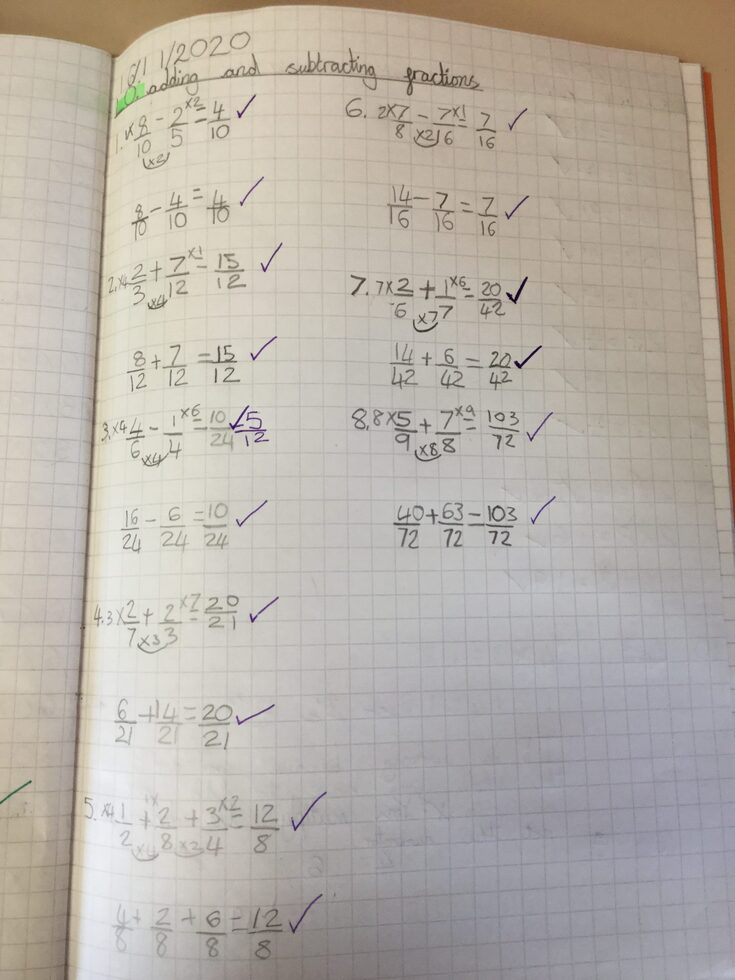 16/11/2020
L.O. adding and subtracting fractions
1. ×1 8/10 - 2/5 ×2 = 4/10 ✓
(×2)
8/10 - 4/10 = 4/10 ✓
2. ×4 2/3 + 7/12 ×1 = 15/12 ✓
(×4)
8/12 + 7/12 = 15/12 ✓
3. ×4 4/6 - 1/4 ×6 = 10/24 ✓ = 5/12
(×4)
16/24 - 6/24 = 10/24 ✓
4. 3× 2/7 + 2/3 ×7 = 20/21 ✓
×3
6/21 + 14/21 = 20/21 ✓
5. ×4 1/2 + 1× 2/8 + 3/4 ×2 = 12/8 ✓
×4 ×2
4/8 + 2/8 + 6/8 = 12/8 ✓
6. 2×7/8 - 7/16 ×1 = 7/16 ✓
×2
14/16 - 7/16 = 7/16 ✓
7. 7× 2/6 + 1/7 ×6 = 20/42 ✓
×7
14/42 + 6/42 = 20/42 ✓
8. 8× 5/9 + 7/8 ×9 = 103/72 ✓
×8
40/72 + 63/72 = 103/72 ✓